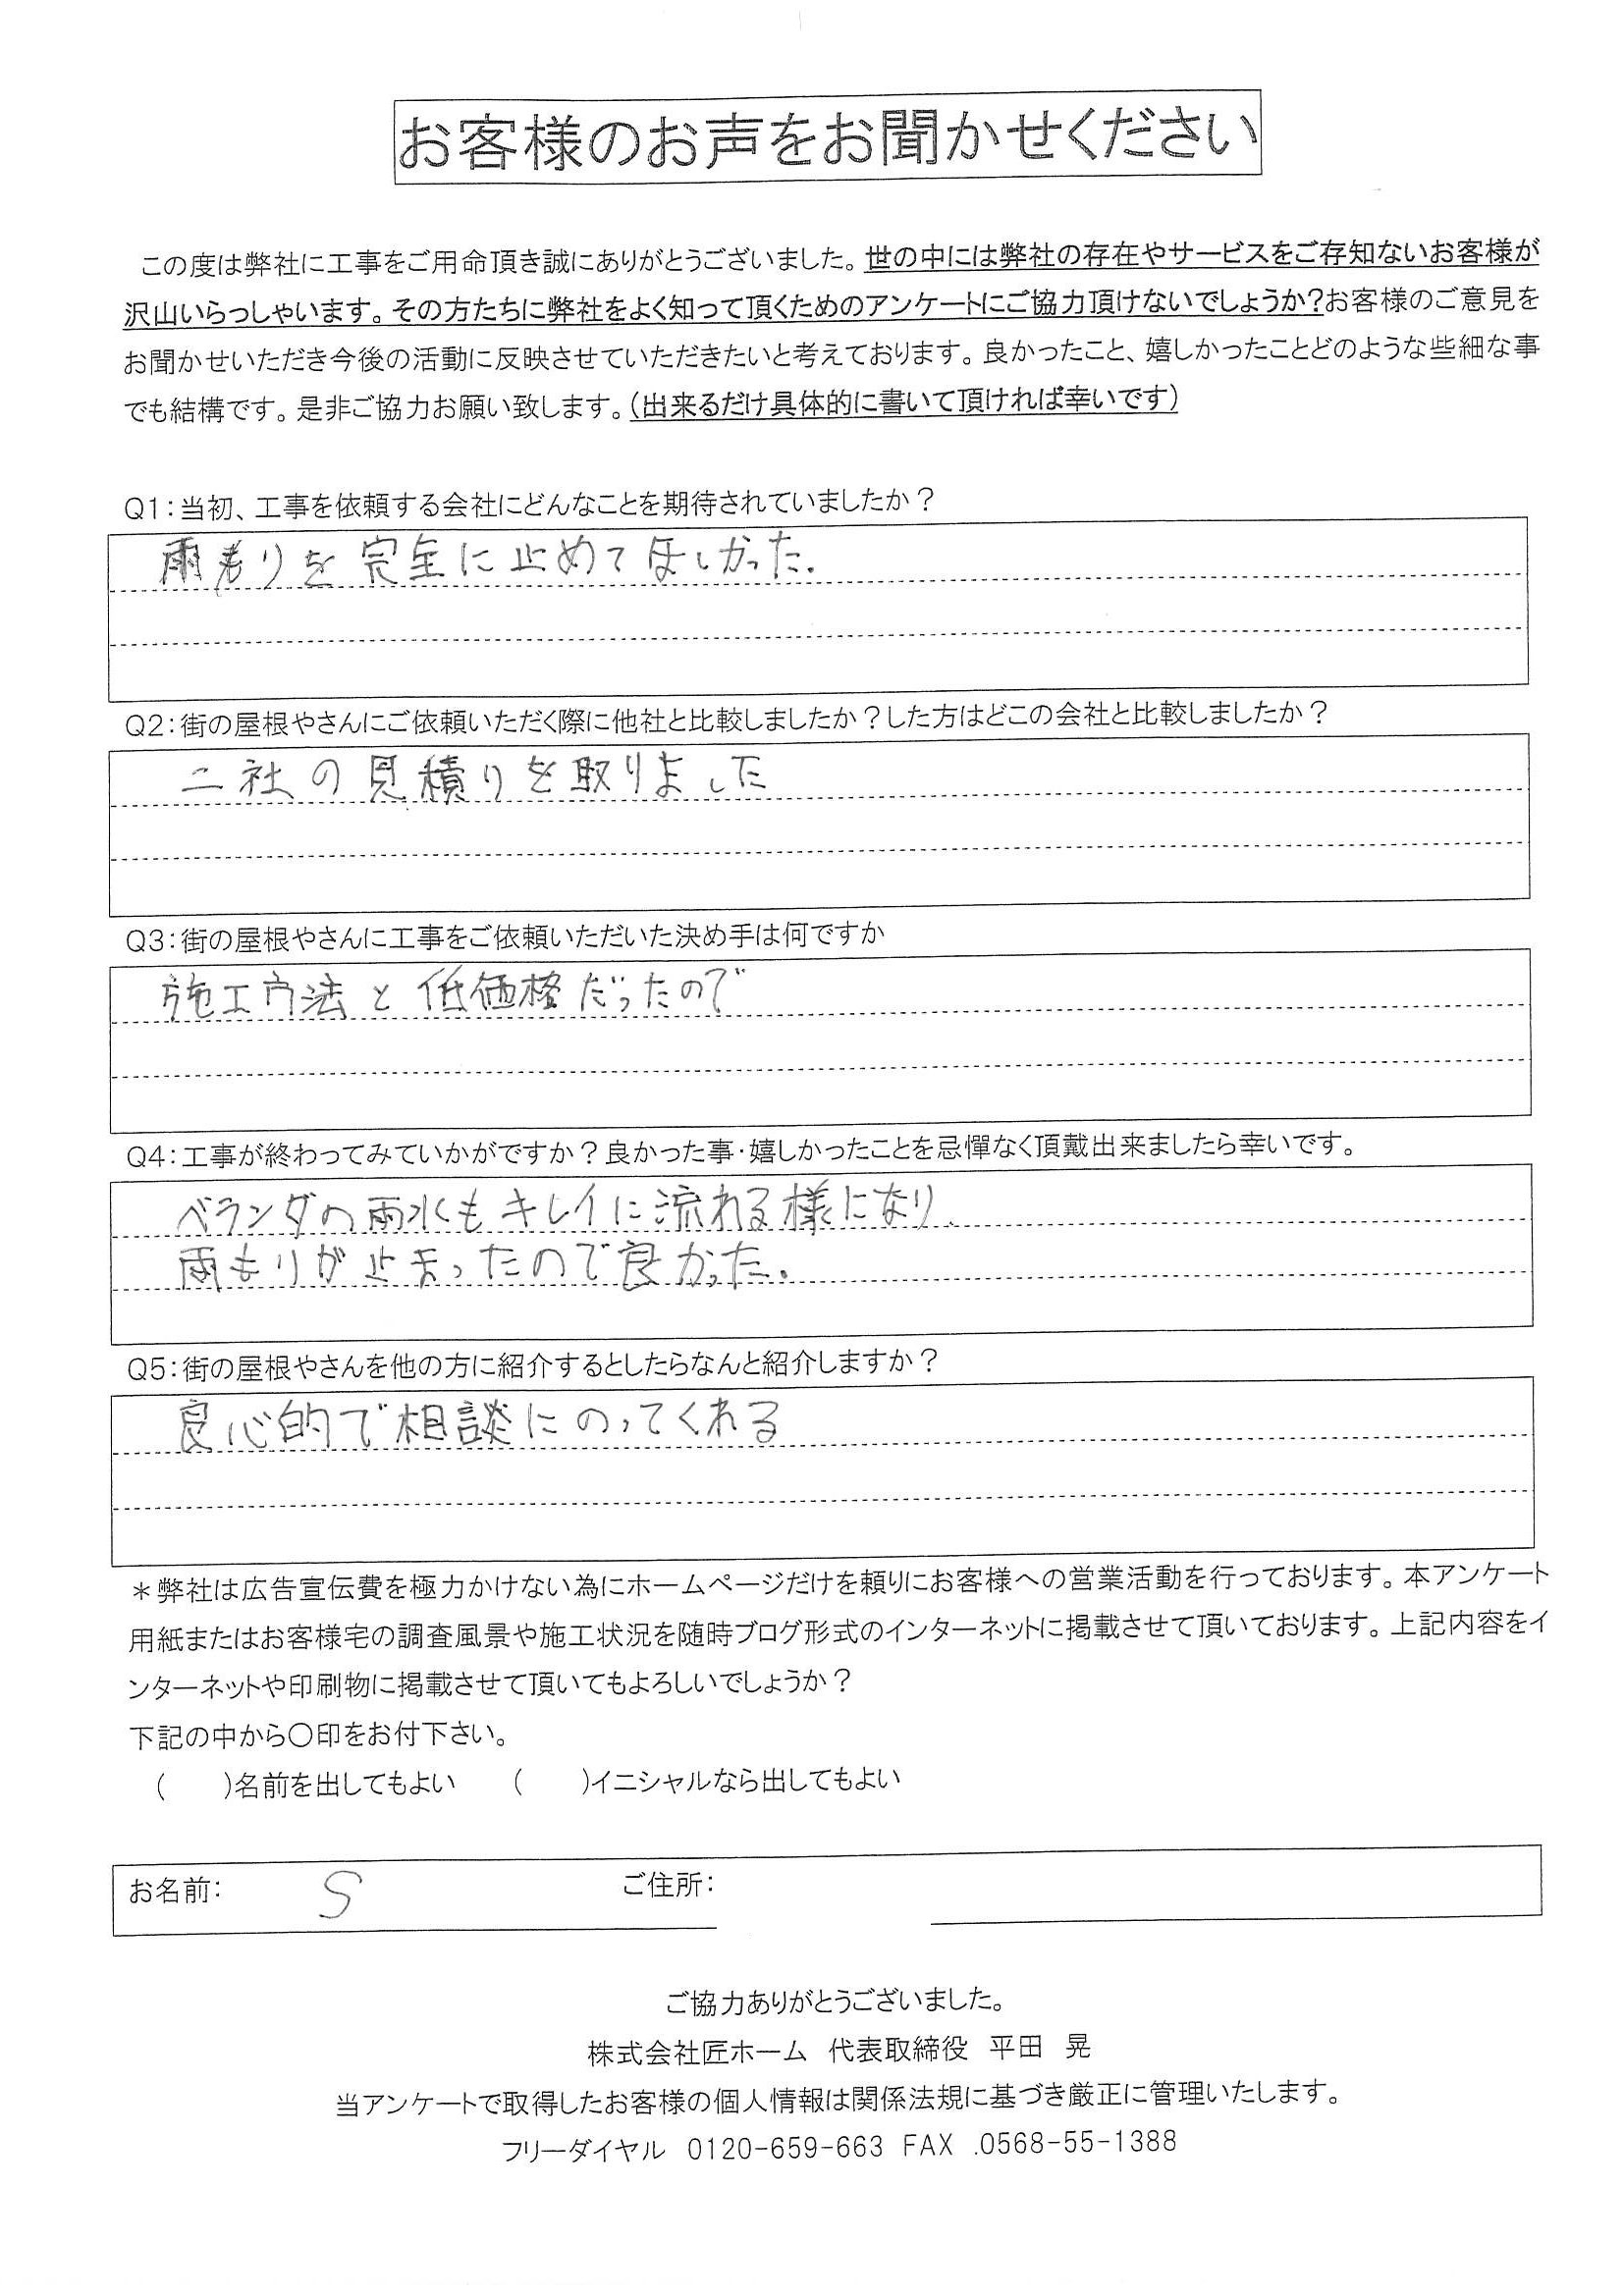 お客様のお声をお聞かせください
この度は弊社に工事をご用命頂き誠にありがとうございました。世の中には弊社の存在やサービスをご存知ないお客様が
沢山いらっしゃいます。その方たちに弊社をよく知って頂くためのアンケートにご協力頂けないでしょうか?お客様のご意見を
お聞かせいただき今後の活動に反映させていただきたいと考えております。良かったこと、嬉しかったことどのような些細な事
でも結構です。是非ご協力お願い致します。(出来るだけ具体的に書いて頂ければ幸いです)
Q1:当初、工事を依頼する会社にどんなことを期待されていましたか?
雨もりを完全に止めてほしかった.
Q2:街の屋根やさんにご依頼いただく際に他社と比較しましたか?した方はどこの会社と比較しましたか?
二社の見積りを取りました
Q3:街の屋根やさんに工事をご依頼いただいた決め手は何ですか
施工方法と低価格だったので
Q4:工事が終わってみていかがですか?良かった事・嬉しかったことを忌憚なく頂戴出来ましたら幸いです。
ベランダの雨水もキレイに流れる様になり、
雨もりが止まったので良かった.
Q5:街の屋根やさんを他の方に紹介するとしたらなんと紹介しますか?
良心的で相談にのってくれる
*弊社は広告宣伝費を極力かけない為にホームページだけを頼りにお客様への営業活動を行っております。本アンケート
用紙またはお客様宅の調査風景や施工状況を随時ブログ形式のインターネットに掲載させて頂いております。上記内容をイ
ンターネットや印刷物に掲載させて頂いてもよろしいでしょうか?
下記の中から〇印をお付下さい。
(　　)名前を出してもよい　　(　　)イニシャルなら出してもよい
お名前:　S　ご住所:
ご協力ありがとうございました。
株式会社匠ホーム　代表取締役　平田　晃
当アンケートで取得したお客様の個人情報は関係法規に基づき厳正に管理いたします。
フリーダイヤル　0120-659-663 FAX .0568-55-1388